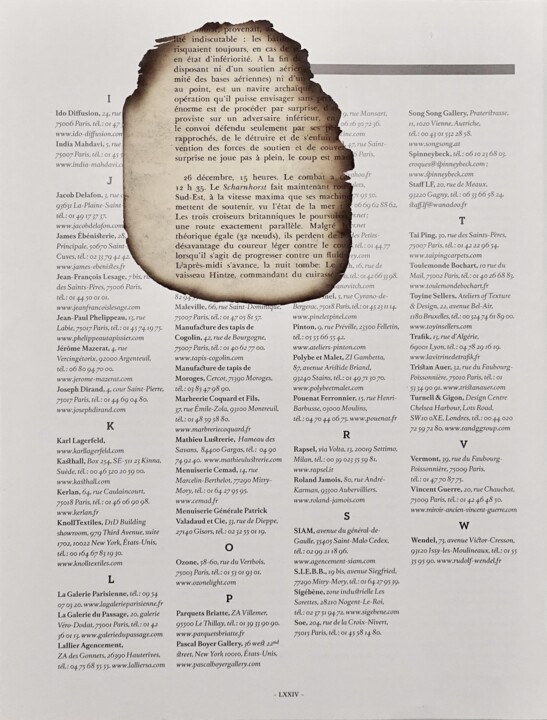 té indiscutable : les bâti
risquaient toujours, en cas de
en état d'infériorité. A la fin de
disposant ni d'un soutien aérien
mité des bases aériennes) ni d'u
au point, est un navire archaïque
opération qu'il puisse envisager sans
énorme est de procéder par surprise, d
proviste sur un adversaire inférieur, en
le convoi défendu seulement par ses
rapprochés, de le détruire et de s'enfuir
vention des forces de soutien et de couv
surprise ne joue pas à plein, le coup est ma
26 décembre, 15 heures. Le combat a
12 h 35. Le Scharnhorst fait maintenant rou
Sud-Est, à la vitesse maxima que ses machin
mettent de soutenir, vu l'état de la mer
Les trois croiseurs britanniques le poursuive
une route exactement parallèle. Malgré
théorique égale (32 nœuds), ils perdent de
désavantage du coureur léger contre le cou
lorsqu'il s'agit de progresser contre un fluide
L'après-midi s'avance, la nuit tombe. Le
vaisseau Hintze, commandant du cuirassé
I
Ido Diffusion, 24, rue
75006 Paris, tél.: 01 4
www.ido-diffusion.com
India Mahdavi, 3, ru
75007 Paris, tél.: 01 45
www.india-mahdavi.c
J
Jacob Delafon,
93631 La-Plaine-Saint-
tél.: 01 49 17 37 37.
www.jacobdelafon.com
James Ébéniste,
Principale, 30670 Saint
Cuves, tél.: 02 33 79 42 42.
www.james-ebenistes.fr
Jean-François Lesage, 7 bis, r
des Saints-Pères, 75006 Paris,
tél.: 01 44 50 01 01.
www.jeanfrancoislesage.com
Jean-Paul Phelippeau, 13, rue
Labie, 75017 Paris, tél.: 01 45 74 19 75.
www.phelippeautapissier.com
Jérôme Mazerat, 4, rue
Vercingétorix, 92000 Argenteuil,
tél.: 06 80 94 70 00.
www.jerome-mazerat.com
Joseph Dirand, 4, cour Saint-Pierre,
75017 Paris, tél.: 01 44 69 04 80.
www.josephdirand.com
K
Karl Lagerfeld,
www.karllagerfeld.com
Kasthall, Box 254, SE-511 23 Kinna,
Suède, tél.: 00 46 320 20 59 00.
www.kasthall.com
Kerlan, 64, rue Caulaincourt,
75018 Paris, tél.: 01 46 06 90 98.
www.kerlan.fr
KnollTextiles, D&D Building
showroom, 979 Third Avenue, suite
1702, 10022 New York, États-Unis,
tél.: 00 164 67 83 19 30.
www.knolltextiles.com
L
La Galerie Parisienne, tél.: 09 54
07 03 20. www.lagalerieparisienne.fr
La Galerie du Passage, 20, galerie
Véro-Dodat, 75001 Paris, tél.: 01 42
36 01 13. www.galeriedupassage.com
Lallier Agencement,
ZA des Gonnets, 26390 Hauterives,
tél.: 04 75 68 55 55. www.lalliersa.com
82 94
Maleville, 66, rue Saint-Dominique,
75007 Paris, tél.: 01 47 05 81 37.
Manufacture des tapis de
Cogolin, 42, rue de Bourgogne,
75007 Paris, tél.: 01 40 62 77 00.
www.tapis-cogolin.com
Manufacture de tapis de
Moroges, Cercot, 71390 Moroges,
tél.: 03 85 47 98 90.
Marbrerie Coquard et Fils,
37, rue Émile-Zola, 93100 Montreuil,
tél.: 01 48 59 58 80.
www.marbreriecoquard.fr
Mathieu Lustrerie, Hameau des
Savans, 84400 Gargas, tél.: 04 90
74 92 40. www.mathieulustrerie.com
Menuiserie Cemad, 14, rue
Marcelin-Berthelot, 77290 Mitry-
Mory, tél.: 01 64 27 95 93.
www.cemad.fr
Menuiserie Générale Patrick
Valadaud et Cie, 33, rue de Dieppe,
27140 Gisors, tél.: 02 32 55 01 19.
O
Ozone, 58-60, rue du Vertbois,
75003 Paris, tél.: 01 53 01 93 01.
www.ozonelight.com
P
Parquets Briatte, ZA Villemer,
95500 Le Thillay, tél.: 01 39 33 90 90.
www.parquetsbriatte.fr
Pascal Boyer Gallery, 36 west 22nd
street, New York 10010, États-Unis.
www.pascalboyergallery.com
9, rue Mansart,
06 16 30 72 36.
47, rue Saint-
06 69 62 88 62.
01 44 77
16, rue de
01 42 66 13 98.
3, rue Cyrano-de-
Bergerac, 75018 Paris, tél.: 01 42 23 11 14.
www.pinelpinel.com
Pinton, 9, rue Préville, 23500 Felletin,
tél.: 05 55 66 53 42.
www.ateliers-pinton.com
Polybe et Malet, ZI Gambetta,
87, avenue Aristide Briand,
93240 Stains, tél.: 01 49 71 50 70.
www.polybeetmalet.com
Pouenat Ferronnier, 13, rue Henri-
Barbusse, 03000 Moulins,
tél.: 04 70 44 06 75. www.pouenat.fr
R
Rapsel, via Volta, 13, 20019 Settimo,
Milan, tél.: 00 39 023 35 59 81.
www.rapsel.it
Roland Jamois, 80, rue André-
Karman, 93300 Aubervilliers.
www.roland-jamois.com
S
SIAM, avenue du général-de-
Gaulle, 35405 Saint-Malo Cedex,
tél.: 02 99 21 18 96.
www.agencement-siam.com
S.I.E.B.B., 19 bis, avenue Siegfried,
77290 Mitry-Mory, tél.: 01 64 27 93 39.
Sigébène, zone industrielle Les
Sorettes, 28210 Nogent-Le-Roi,
tél.: 02 37 51 94 72. www.sigebene.com
Soe, 204, rue de la Croix-Nivert,
75015 Paris, tél.: 01 45 58 14 80.
Song Song Gallery, Praterstrasse,
11, 1020 Vienne, Autriche,
tél.: 00 43 01 332 28 58.
www.songsong.at
Spinneybeck, tél.: 06 10 23 68 03.
croques@spinneybeck.com ;
www.spinneybeck.com
Staff I.F, 20, rue de Meaux,
93220 Gagny, tél.: 06 33 66 58 24.
staff.if@wanadoo.fr
T
Tai Ping, 30, rue des Saints-Pères,
75007 Paris, tél.: 01 42 22 96 54.
www.taipingcarpets.com
Toulemonde Bochart, 10 rue du
Mail, 75002 Paris, tél.: 01 40 26 68 83.
www.toulemondebochart.fr
Toyine Sellers, Ateliers of Texture
& Design, 22, avenue Bel-Air,
1180 Bruxelles, tél.: 00 324 74 61 89 00.
www.toyinsellers.com
Trafik, 13, rue d'Algérie,
69001 Lyon, tél.: 04 78 29 16 19.
www.lavitrinedetrafik.fr
Tristan Auer, 32, rue du Faubourg-
Poissonnière, 75010 Paris, tél.: 01
55 34 90 91. www.tristanauer.com
Turnell & Gigon, Design Centre
Chelsea Harbour, Lots Road,
SW10 0XE, Londres, tél.: 00 44 020
72 59 72 80. www.tandggroup.com
V
Vermont, 39, rue du Faubourg-
Poissonnière, 75009 Paris,
tél.: 01 47 70 87 75.
Vincent Guerre, 20, rue Chauchat,
75009 Paris, tél.: 01 42 46 48 50.
www.miroir-ancien-vincent-guerre.com
W
Wendel, 73, avenue Victor-Cresson,
92130 Issy-les-Moulineaux, tél.: 01 55
35 95 90. www.rudolf-wendel.fr
- LXXIV -